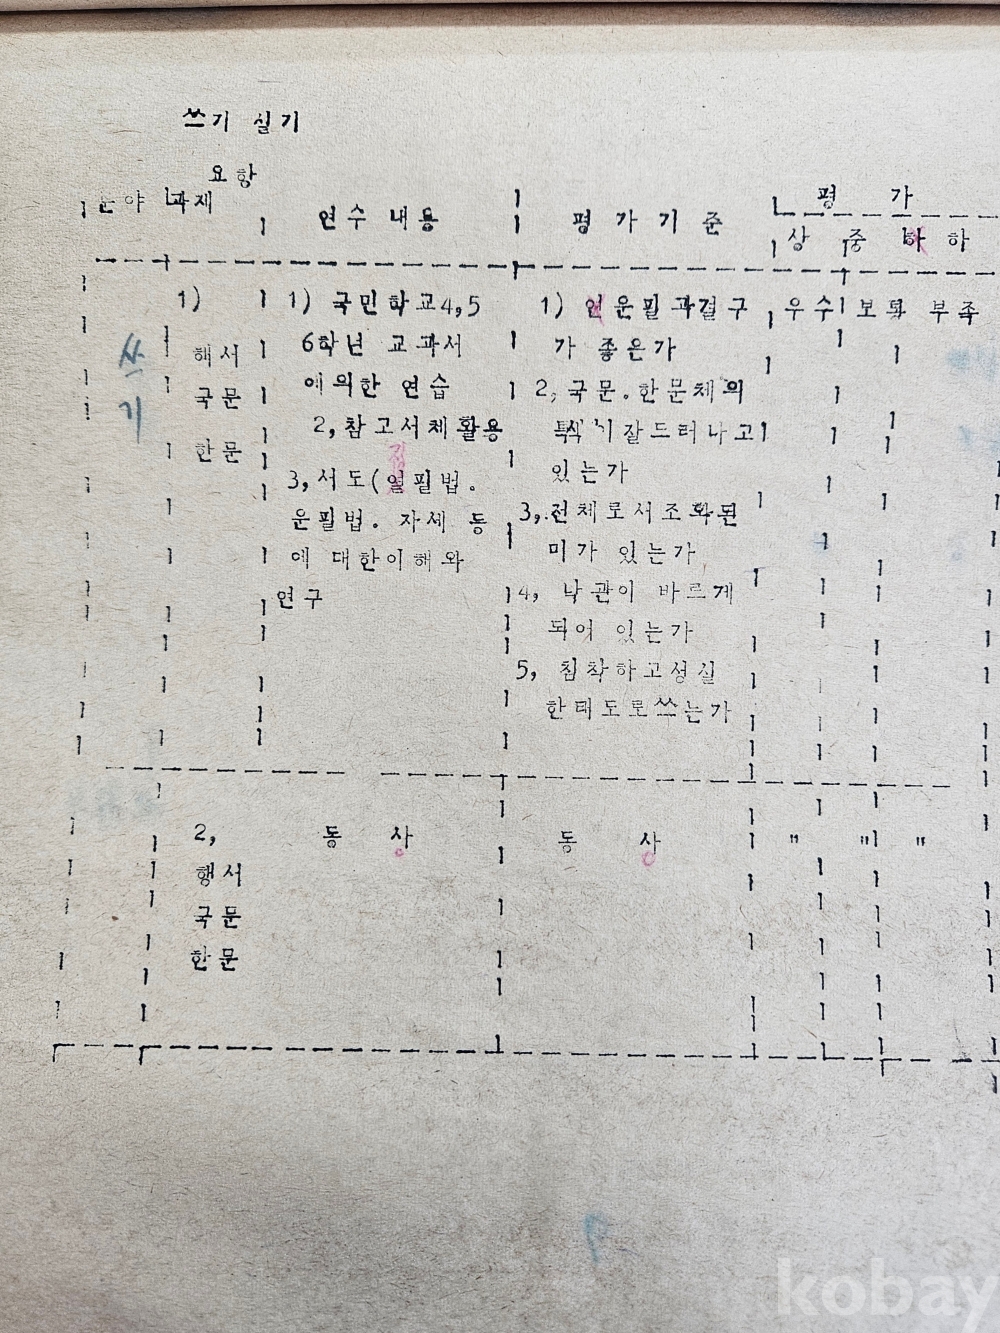 쓰기 실기
요항
분야 과제
연수 내용
평 가 기 준
평 가
상 중 하 하
쓰기
1)
해서
국문
한문
1) 국민학교4,5
6학년 교과서
에의한 연습
2,참고서체활용
집
3,서도(얼필법.
운필법. 자세 등
에 대한이해와
연구
1) 운필과결구
가 좋은가
2,국문.한문체의
특색이잘드러나고
있는가
3,.전체로서조화된
미가 있는가
4, 낙관이 바르게
되어 있는가
5, 침착하고성실
한태도로쓰는가
우수 보통 부족
2,
행서
국문
한문
동 상
동 상
" " "
kobay